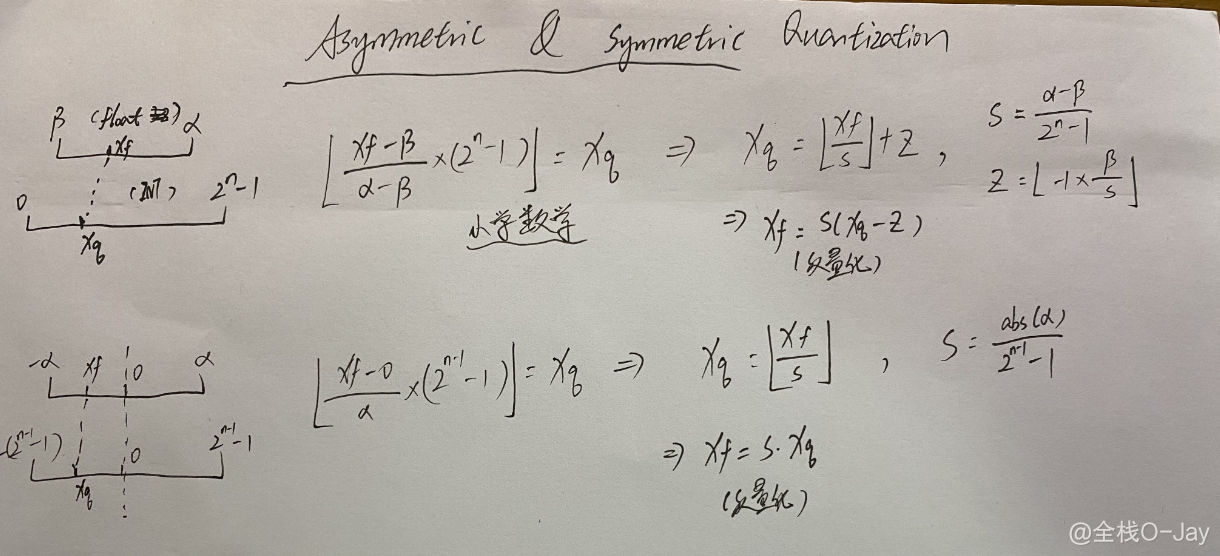 Asymmetric & Symmetric Quantization
β (float) α
xf
(INT)
0 2ⁿ-1
xq
⌊(xf-β)/(α-β) ×(2ⁿ-1)⌋ = xq ⇒ xq = ⌊xf/s⌋+Z , S = (α-β)/(2ⁿ-1)
Z = ⌊-1×β/s⌋
小学数学
⇒ xf = S(xq-Z)
(反量化)
-α xf 0 α
-(2ⁿ⁻¹-1) 0 2ⁿ⁻¹-1
xq
⌊(xf-0)/α ×(2ⁿ⁻¹-1)⌋ = xq ⇒ xq = ⌊xf/s⌋ , S = abs(α)/(2ⁿ⁻¹-1)
⇒ xf = S·xq
(反量化)
@全栈O-Jay